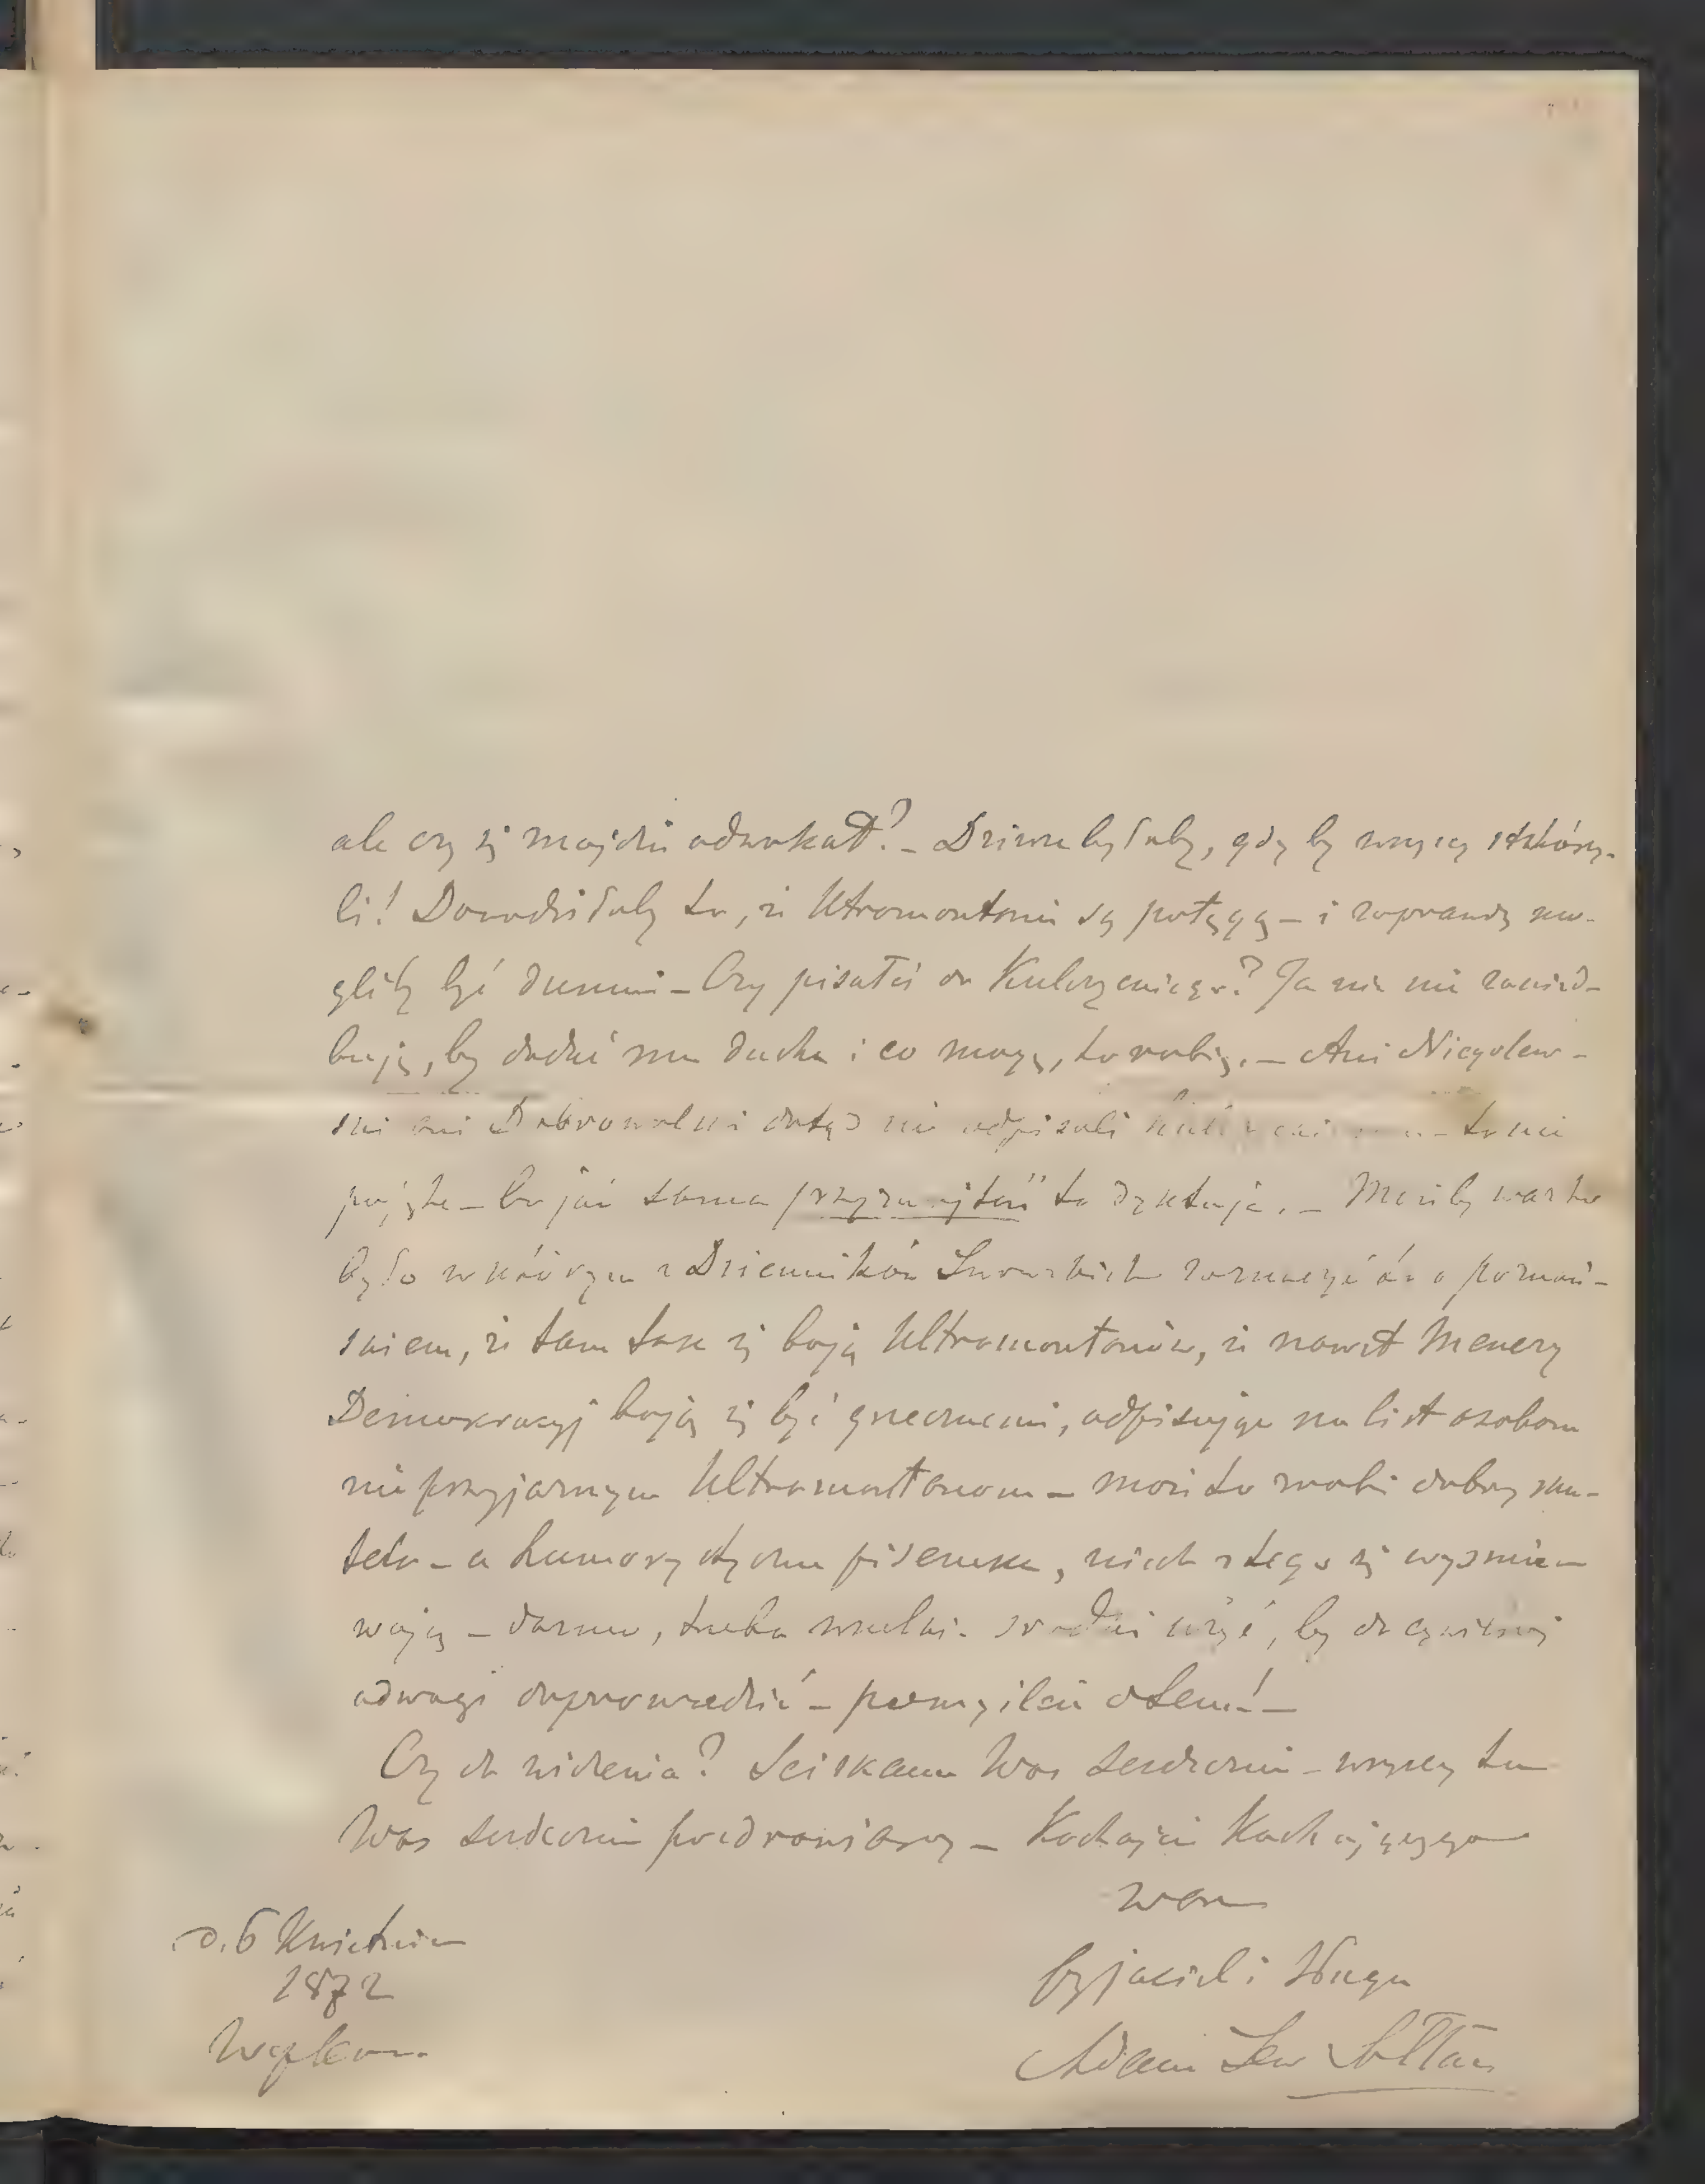 ale czy się znajdzie adwokat? – Dziwne byłoby, gdy by wszyscy stchórzy-
li! Dowodziłoby to, że Ultramontanie są potęgą – i zaprawdę mo-
gliby być dumni – Czy pisałeś do Kulczyckiego? Ja nic nie zanied-
buję, by dodać mu ducha i co mogę, to robię. – Ani Niegolew-
ski ani Dobrowolski dotąd nie odpisali – to nie
pojęte – bo już sama przyzwoitość to dyktuje. – Możeby warto
było w którym z Dzienników Lwowskich zaznaczyć to o poznań-
skiem, że tam tak się boją Ultramontanów, że nawet Menerzy
Demokracyj boją się być grzecznemi, odpisując na list osobom
nieprzyjaznym Ultramontanom – może to zrobi dobry sku-
tek – a humorystyczne pisemka, niech z tego się wyśmie-
wają – darmo, trzeba wszelkie środki użyć, by do cywilnej
odwagi doprowadzić – pomyślcie o tem! –
Czy do widzenia? Ściskam Was serdecznie – wszyscy tu
Was serdecznie pozdrawiamy – Kochajcie Kochającego
Was
przyjaciel i sługa
Adam Lew Sołtan
d. 6 Kwietnia
1872